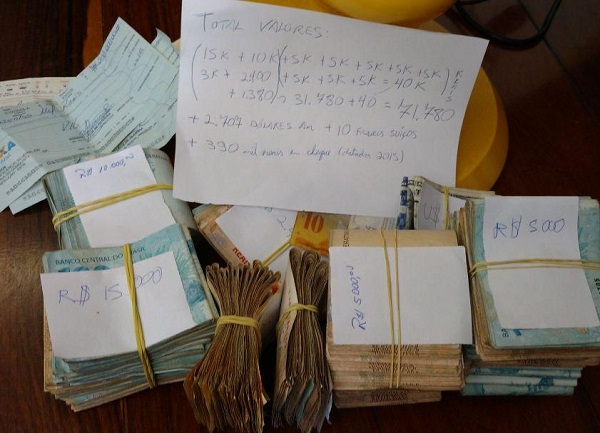 TOTAL VALORES:
(15K + 10K)(+5K + 5K + 5K + 5K + 5K)
3K + 2400 (+5K + 5K + 5K = 40K
+ 1380), 31.780 + 40 = 71.780
+ 2.707 DÓLARES Am + 10 FRANCOS SUÍÇOS
+ 390 mil reais em cheque (datados 2015)
R$ 10.000,00
BANCO CENTRAL DO BRASIL
R$ 15.000
10
R$ 5.000,00
U$
R$ 5.000